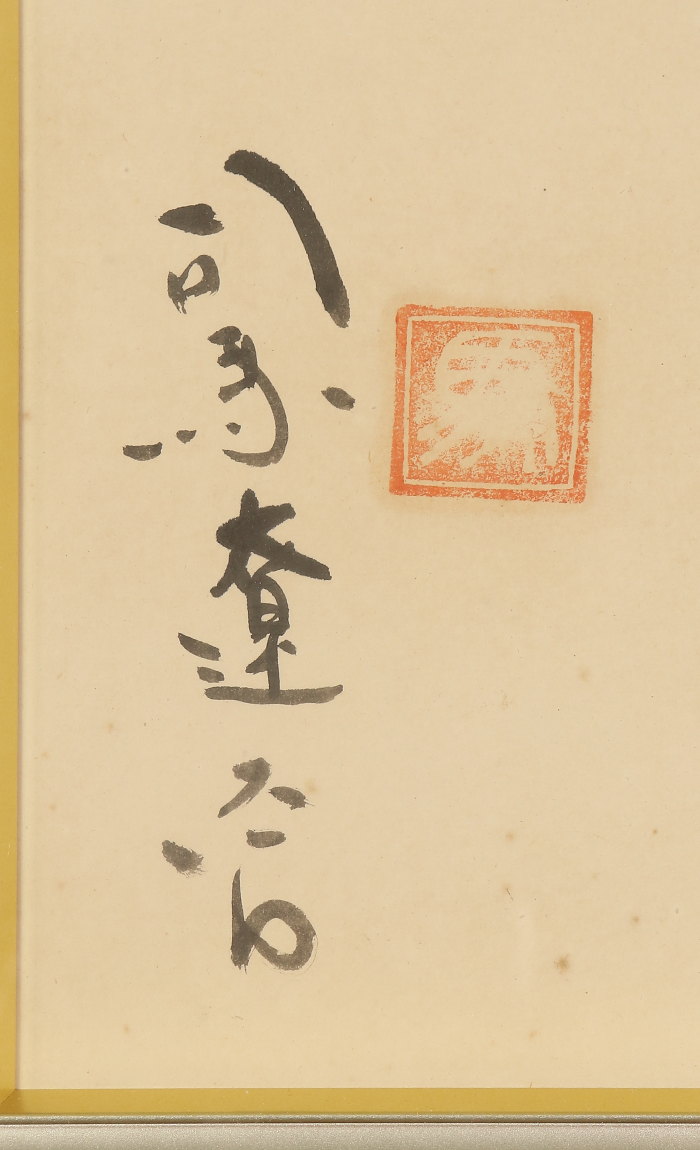 司馬遼太郎